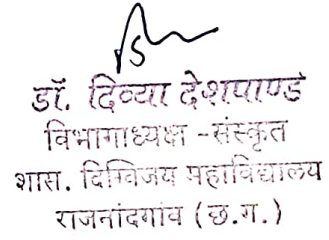 डॉ. दिव्या देशपाण्डे
विभागाध्यक्ष -संस्कृत
शास. दिग्विजय महाविद्यालय
राजनांदगांव (छ.ग.)